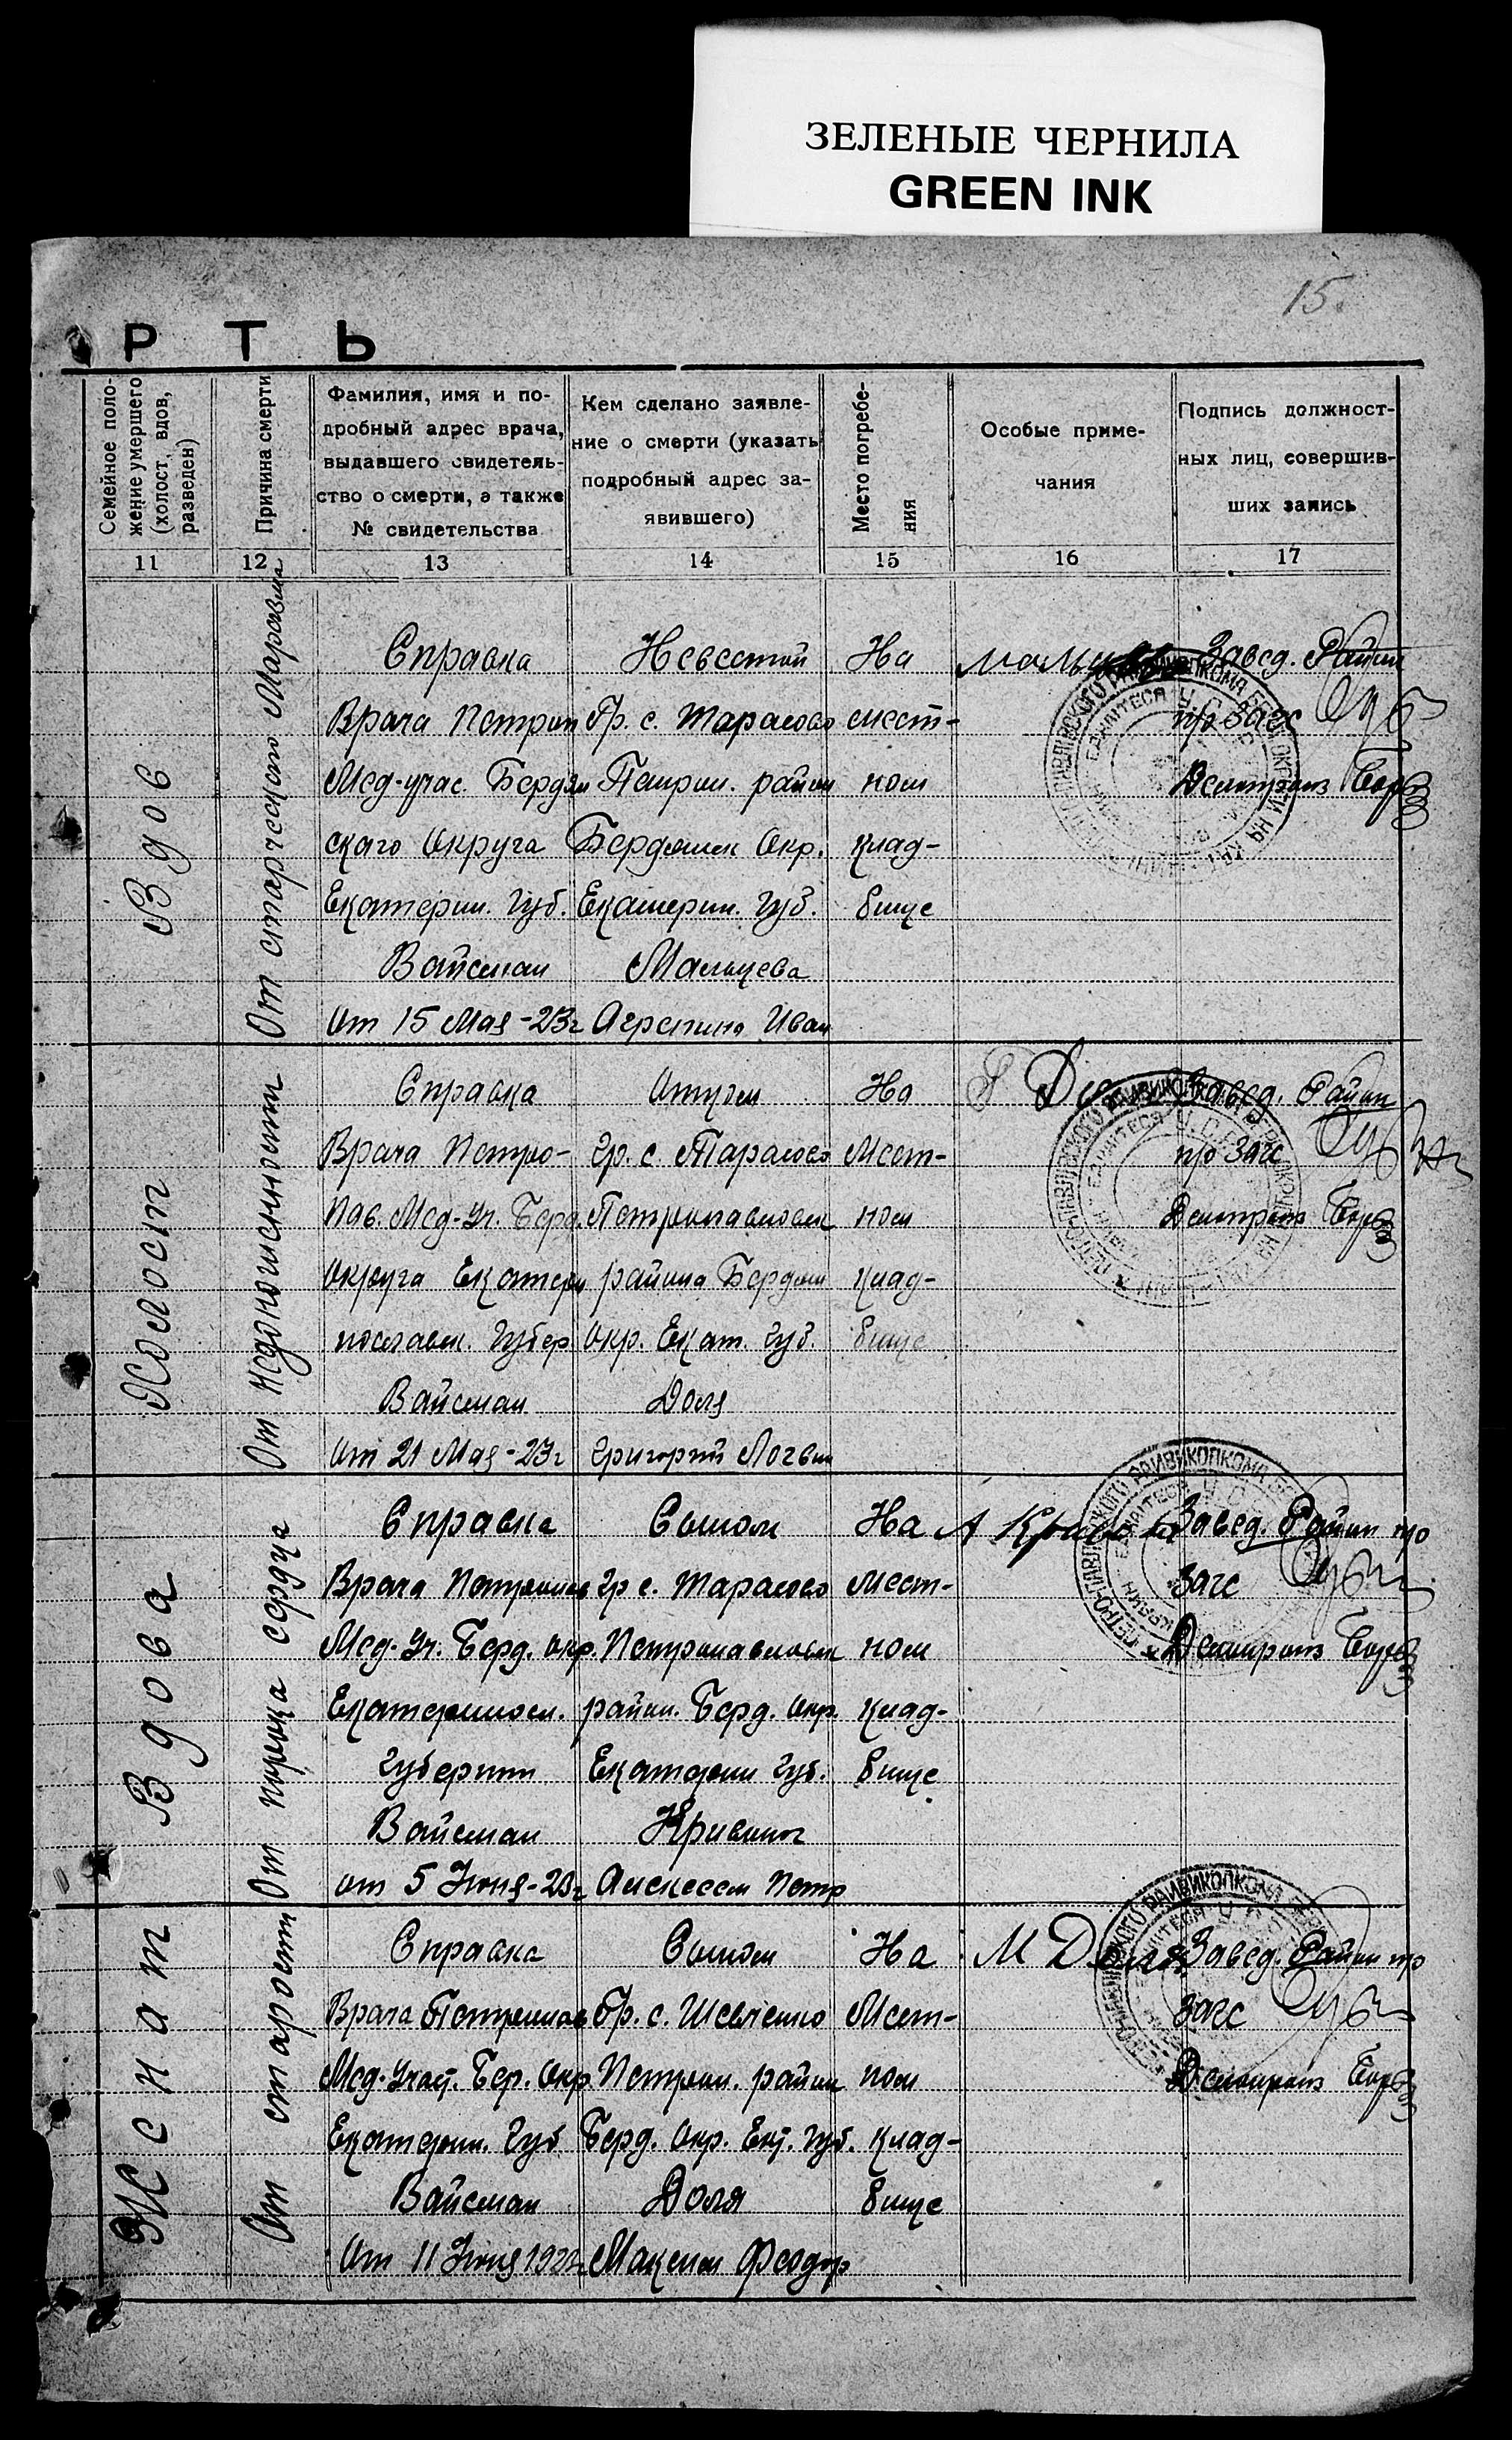 ЗЕЛЕНЫЕ ЧЕРНИЛА
GREEN INK
15.
Р Т Ь
Семейное поло-
жение умершего
(холост, вдов,
разведен)
Причина смерти
Фамилия, имя и по-
дробный адрес врача,
выдавшего свидетель-
ство о смерти, а также
№ свидетельства
Кем сделано заявле-
ние о смерти (указать
подробный адрес за-
явившего)
Место погребе-
ния
Особые приме-
чания
Подпись должност-
ных лиц, совершив-
ших запись
11
12
13
14
15
16
17
Вдов
От старческаго Маразма
Справка
Врача Петроп
Мед-учас. Бердян
скаго Округа
Екатерин. Губ.
Вайсман
От 15 Мая-23г
Невесткой
Гр. с. Тарасово
Петроп. район
Бердянск Окр.
Екатерин. Губ.
Мальцева
Агрепина Иван
На
мест-
ном
клад-
бище
Завед. Район
п/о Загс
Делопроиз
Холост
От недоношенности
Справка
Врача Петро-
Пав. Мед-Уч. Берд.
Округа Екатери
нославск. Губер.
Вайсман
От 21 Мая-23г
Отцом
Гр. с. Тарасово
Петропавловск
района Бердян
Окр. Екат. Губ.
Доля
Григорий Логвин
На
Мест-
ном
клад-
бище
Завед. Район
п/о Загс
Делопроиз
Вдова
От порока сердца
Справка
Врача Петропав
Мед-Уч. Берд. Окр.
Екатериносл.
Губернии
Вайсман
От 5 Июня-23г
Сыном
Гр с. Тарасово
Петропавловск
район. Берд. Окр.
Екатерин Губ.
Кривонос
Алексеем Петр
На
Мест-
ном
клад-
бище
Завед. Район п/о
Загс
Делопроиз
Женат
От старости
Справка
Врача Петропав
Мед-Участ. Бер. Окр
Екатерин. Губ
Вайсман
От 11 Июня 1923г
Сыном
Гр. с. Шевченко
Петроп. район
Берд. Окр. Ект. Губ.
Доля
Максим Федор
На
Мест-
ном
клад-
бище
М Доля
Завед. Район п/о
Загс
Делопроиз